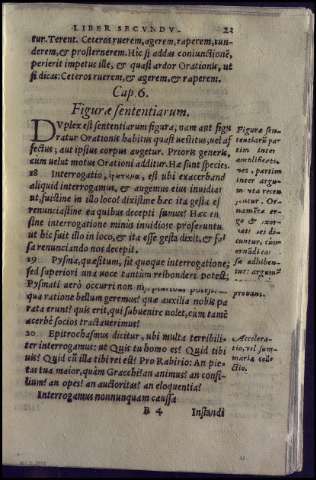 LIBER SECVNDV. 22
tur. Terent. Ceteros ruerem, agerem, raperem, tun-
derem, & prosternerem. Hic si addas coniunctionē,
perierit impetus ille, & quasi ardor Orationis, ut
si dicas: Ceteros ruerem, & agerem, & raperem.
Cap. 6.
Figuræ sententiarum.
DVplex est sententiarum figura, nam aut fign
ratur Orationis habitus quasi uestitus, uel af
fectus; aut ipsius corpus augetur. Prioris generis,
cum uelut motus Orationi additur. Hæ sunt species.
18 Interrogatio, est ubi exacerband
aliquid interrogamus, & augemus eius inuidiam
ut, fuistine in illo loco? dixistine hæc ita gesta es
renunciastine ea quibus decepti sumus? Hæc en
sine interrogatione minus inuidiose proferuntu
ut hic fuit illo in loco, & ita esse gesta dixit, & fal
sa renunciando nos decepit.
19 Pysma, quæsitum, sit quoque interrogatione;
sed superiori una uoce tantum respondere potest;
Pysmati uerò occurri non
qua ratione bellum geremus? quæ auxilia nobis pa
rata erunt? quis erit, qui subuenire nolet, cum tamē
acerbè socios tractauerimus?
20 Epitrochasmus dicitur, ubi multa terribili-
ter interrogamus: ut Quis tu homo es? Quid tibi
uis? Quid cū illa tibi rei est? Pro Rabirio: An pie-
tas tua maior, quàm Gracchi? an animus? an consi-
lium? an opes? an auctoritas? an eloquentia?
Interrogamus nonnunquam caussa
B 4 Instandi
Figuræ sen-
tentiarū par
tim inter
amplificati
, partim
inter argu
ta recen
tur. Or-
& o
sed di-
cuntur, cum
adhiben-
tur argumē
Accelera-
tio, uel sum-
maria colle-
ctio.